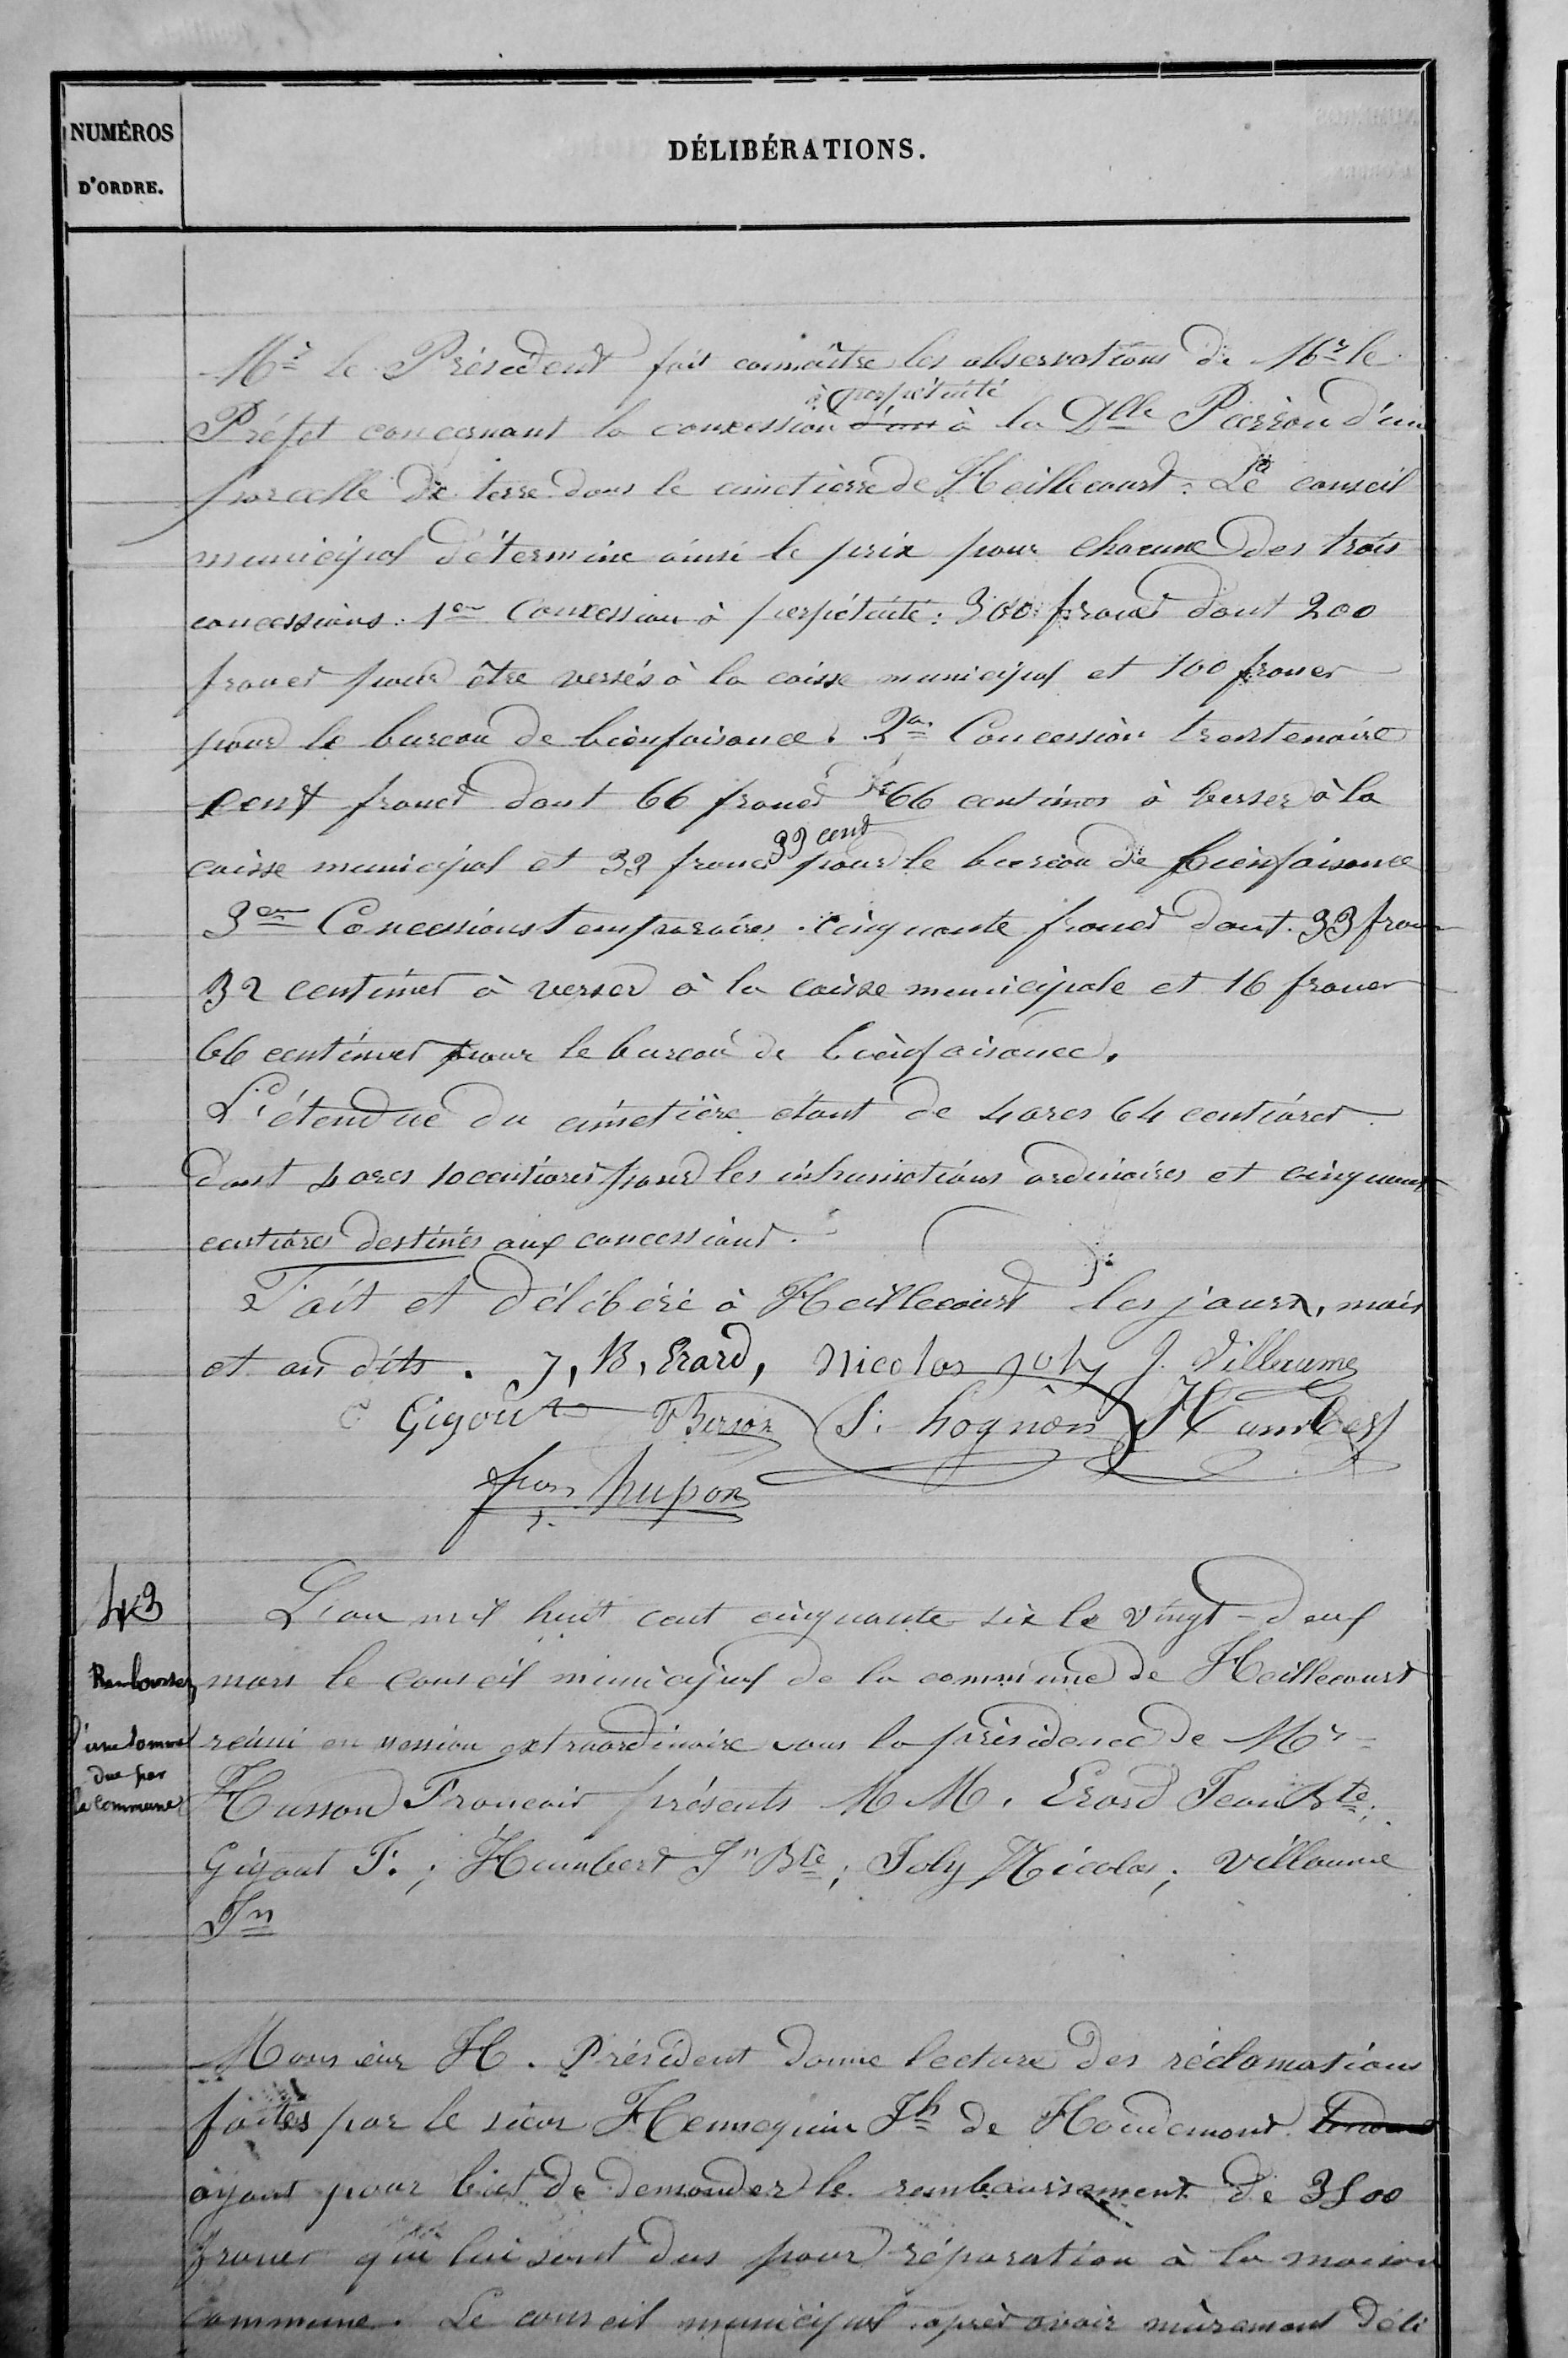 NUMÉROS
D'ORDRE.
DÉLIBÉRATIONS.
Mr le Président fait connaître les observations de Mr le
à perpétuité
Préfet concernant la concession d'un à la Dlle Pierron d'un
parcelle de terre dans le cimetierre de Heillecourt. Le conseil
municipal détermine ainsi le prix pour chacune des trois
concessions. 1ere Concession à perpétuité : 300 francs dont 200
francs pour être versés à la caisse municipal et 100 francs
pour le bureau de bienfaisance. 2e Concession trentenaire
cent francs dont 66 francs 66 centimes à verser à la
33 cent
caisse municipal et 33 francs pour le bureau de bienfaisance
3em Concessions temporaires. cinquante francs dont 33 francs
32 centimes à verser à la caisse municipale et 16 francs
66 centimes pour le bureau de bienfaisance.
L'étendue du cimetière étant de 4 ares 64 centiares
dont 4 ares 10 centiares pour les inhumations ordinaires et cinquant
centiares destinés aux concessions.
Fait et délibéré à Heillecourt les jours, mois
et an dits. J, B, Erard, Nicolas joly J. Villaume
Gigout Husson S. hognon Humbert
fran hupon
43
L'an mil huit cent cinquante six le vingt-deux
Rembourser
mars le conseil municipal de la commune de Heillecourt
d'une somme
réuni en session extraordinaire sous la présidence de Mr
due par
la commune
Husson François présents M M. Erard Jean Bte;
Gigout F.; Humbert Jn Bte; Joly Nicolas; Villaume
Jn
Monsieur H. Président donne lecture des réclamations
faites par le sieur Hennequin Jh de Houdemont
ayant pour but de demander le remboursement de 3500
francs qui lui sont dus pour réparation à la maison
commune. Le conseil municipal après avoir mûrement déli